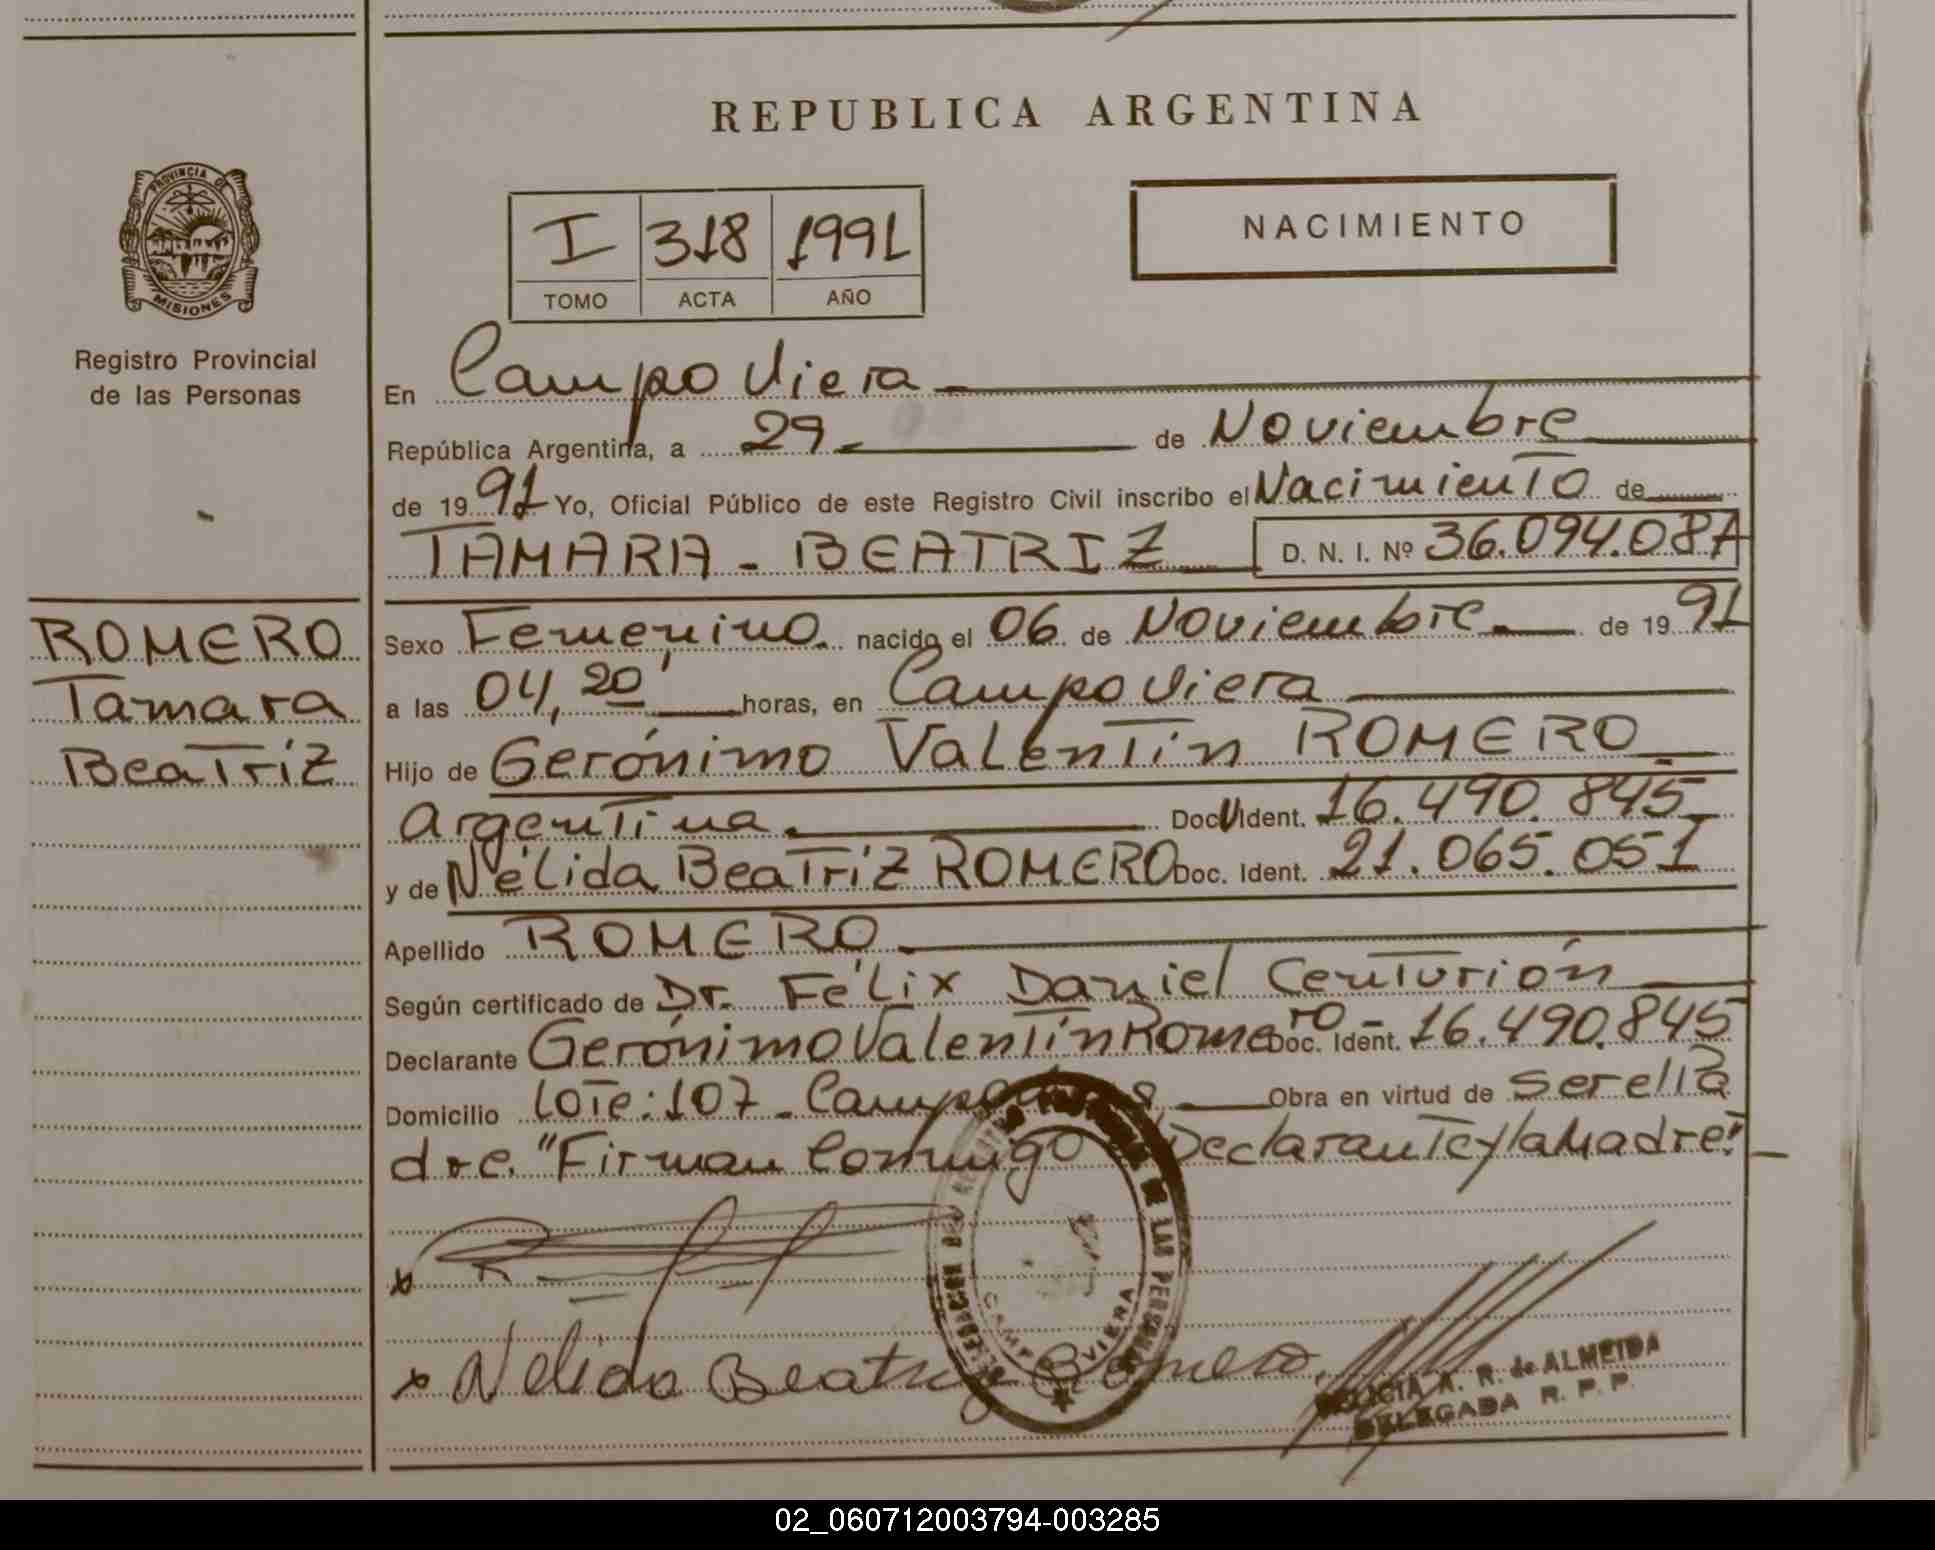 REPUBLICA ARGENTINA
PROVINCIA DE
MISIONES
Registro Provincial
de las Personas
I 318 1991
TOMO ACTA AÑO
NACIMIENTO
En Campo Viera
República Argentina, a 29 de Noviembre
de 1991 Yo, Oficial Público de este Registro Civil inscribo el Nacimiento de
TAMARA - BEATRIZ D. N. I. Nº 36.094.081
ROMERO
Tamara
Beatriz
Sexo Femenino. nacido el 06 de Noviembre de 1991
a las 04,20' horas, en Campo Viera
Hijo de Gerónimo Valentín ROMERO
Argentina Doc. Ident. 16.490.845
y de Nélida Beatriz ROMERO Doc. Ident. 21.065.051
Apellido ROMERO
Según certificado de Dr. Félix Daniel Centurión
Declarante Gerónimo Valentín Romero Doc. Ident. 16.490.845
Domicilio Lote: 107 - Campo Obra en virtud de ser el Pa
dre. "Firman Conmigo Declarante y la Madre"
DE LAS PERSONAS
CAMPO VIERA
Nelida Beatriz Romero
A. R. de ALMEIDA
DELEGADA R. P. P.
02_060712003794-003285